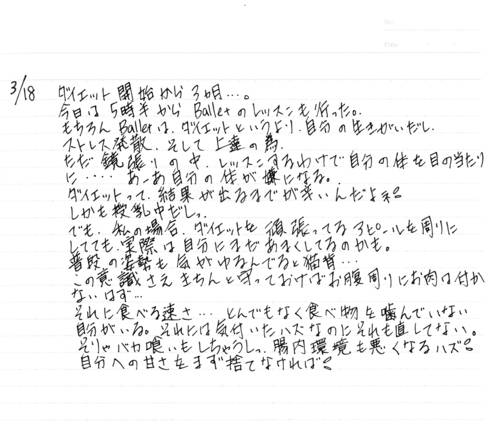 3/18
ダイエット開始から3ヵ月…。
今日は5時半からBalletのレッスンも行った。
もちろんBalletは、ダイエットというより、自分の生きがいだし、
ストレス発散、そして上達の為。
ただ鏡張りの中、レッスンするわけで自分の体を目の当たり
に‥‥あーあ自分の体が嫌になる。
ダイエットって、結果が出るまでが辛いんだよネ!
しかも授乳中だしっ。
でも、私の場合、ダイエットを頑張ってるアピールを周りに
してても、実際は自分にまだあまくしてるのかも。
普段の姿勢も気がゆるんでると猫背…
この意識さえきちんと守っておけばお腹周りにお肉は付か
ないはず…
それに食べる速さ…とんでもなく食べ物を噛んでいない
自分がいる。それには気付いたハズなのにそれも直してない。
そりゃバカ喰いもしちゃうしっ、腸内環境も悪くなるハズ!
自分への甘さをまず捨てなければ!